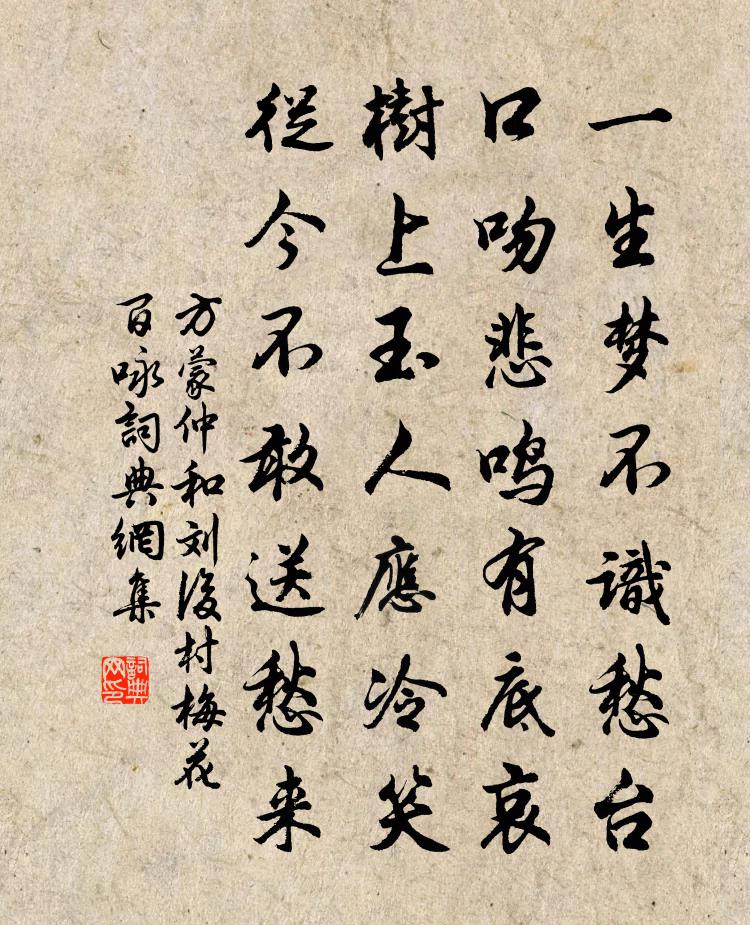 一生梦不識愁台
口吻悲鸣有底哀
樹上玉人應冷笑
從今不敢送愁来
方蒙仲和刘後村梅花
百咏詞典網集
詞典网印